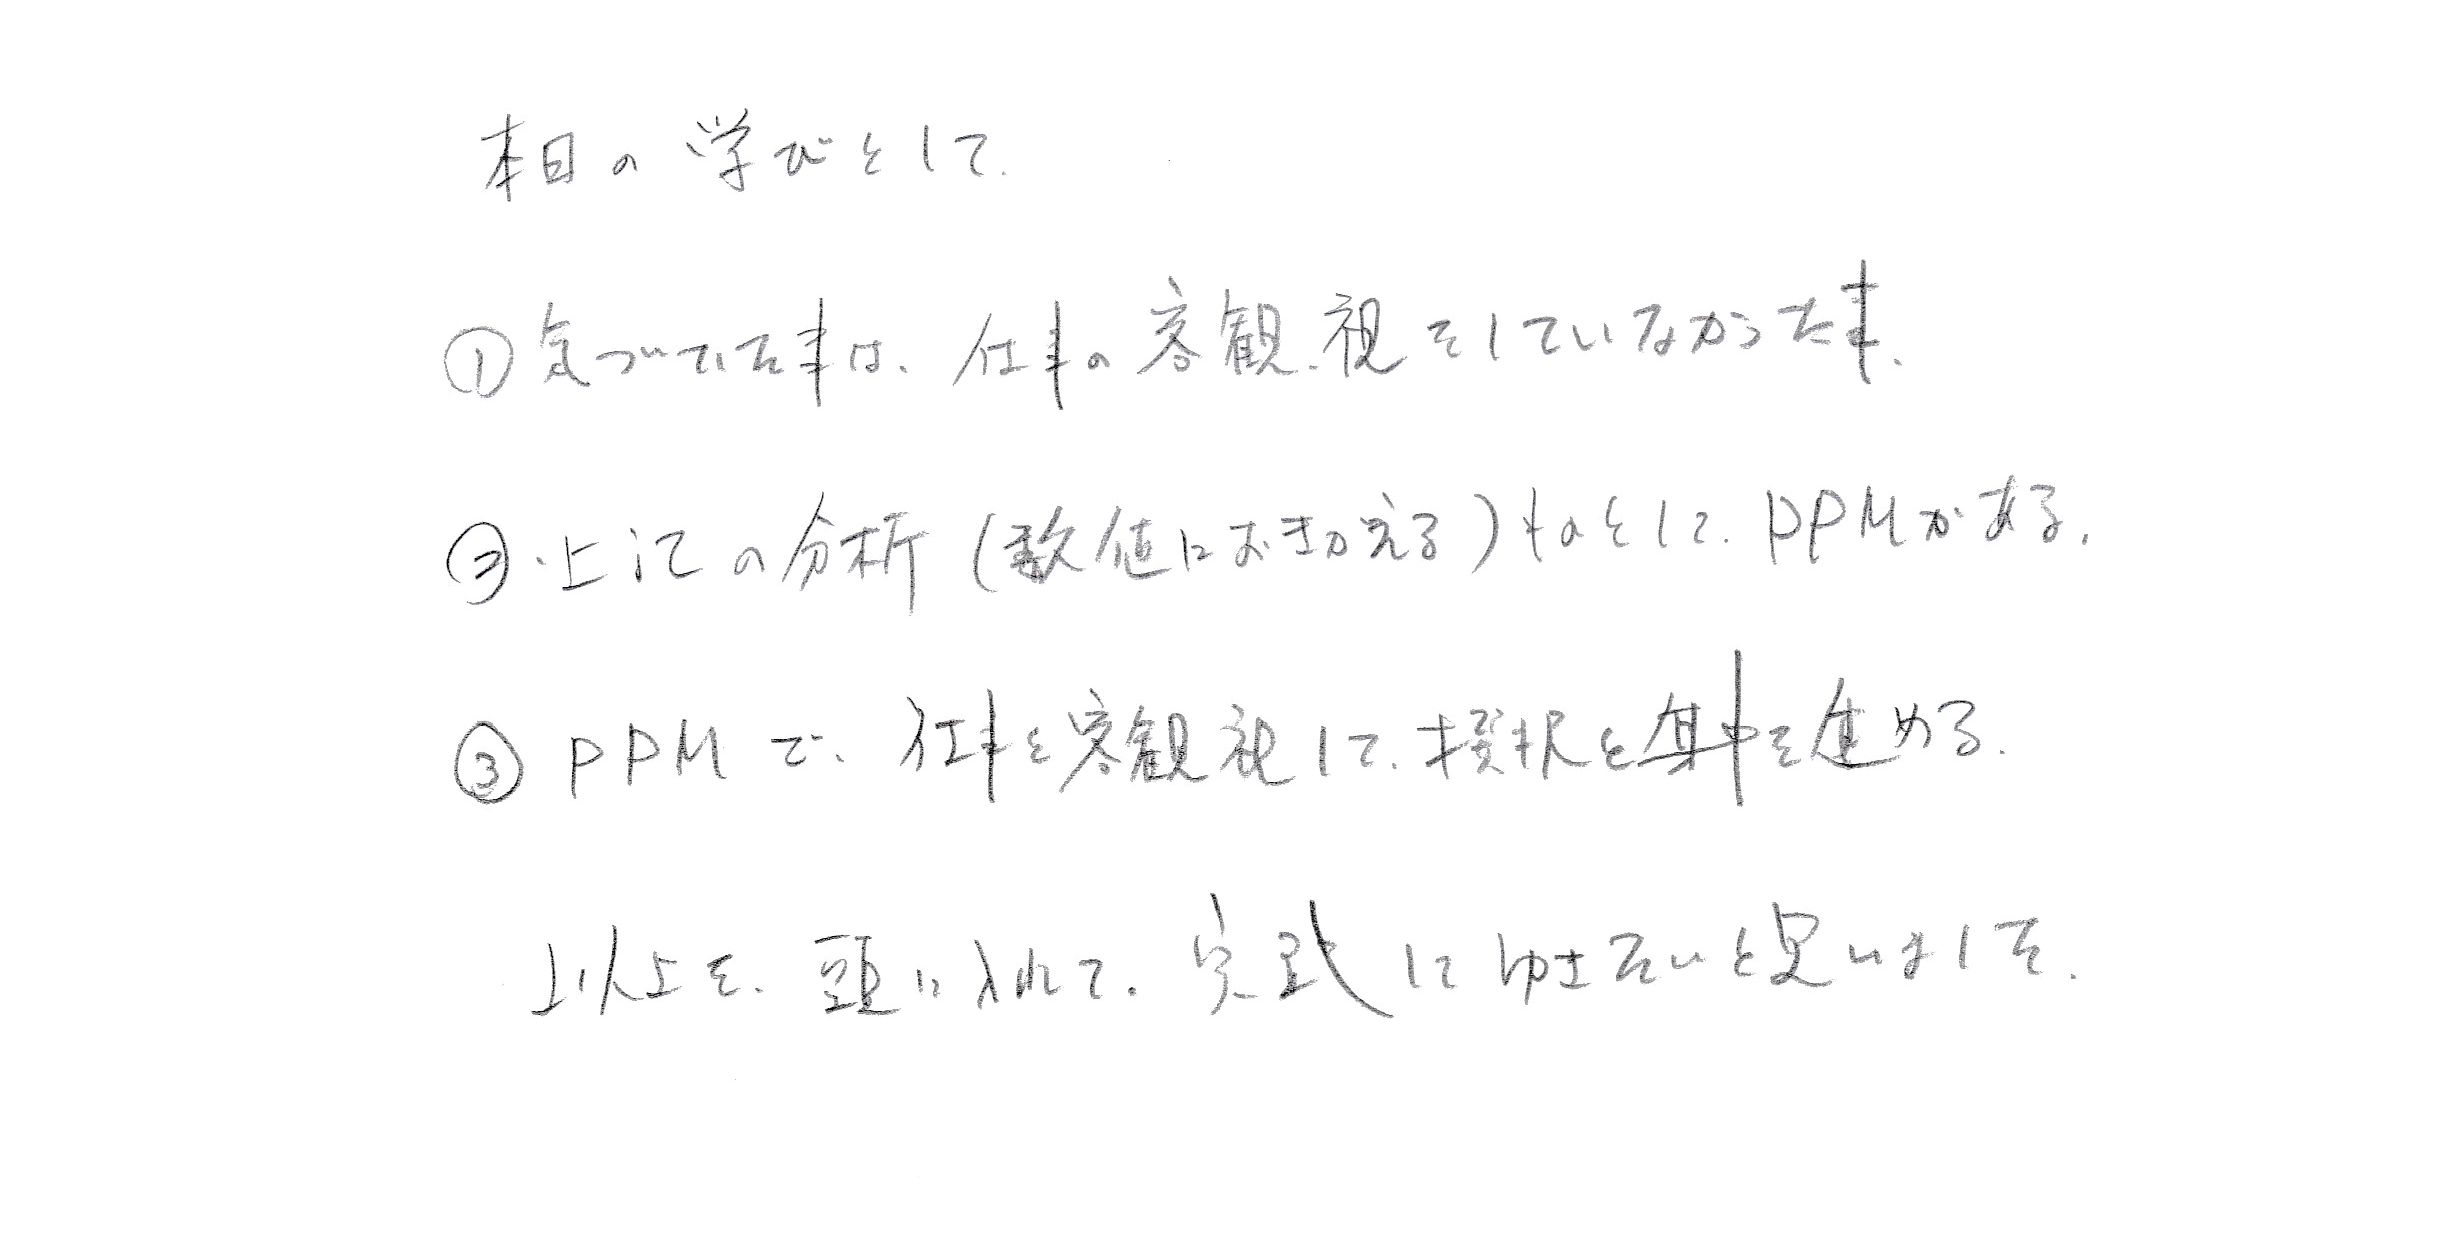 本日の学びとして、
①気づいた事は、仕事の客観視をしていなかった事、
②上記の分析(数値におきかえる)ものとして、PPMがある、
③PPMで、仕事を客観視して、撰択と集中を進める、
以上を、頭に入れて、実践してゆきたいと思いました、